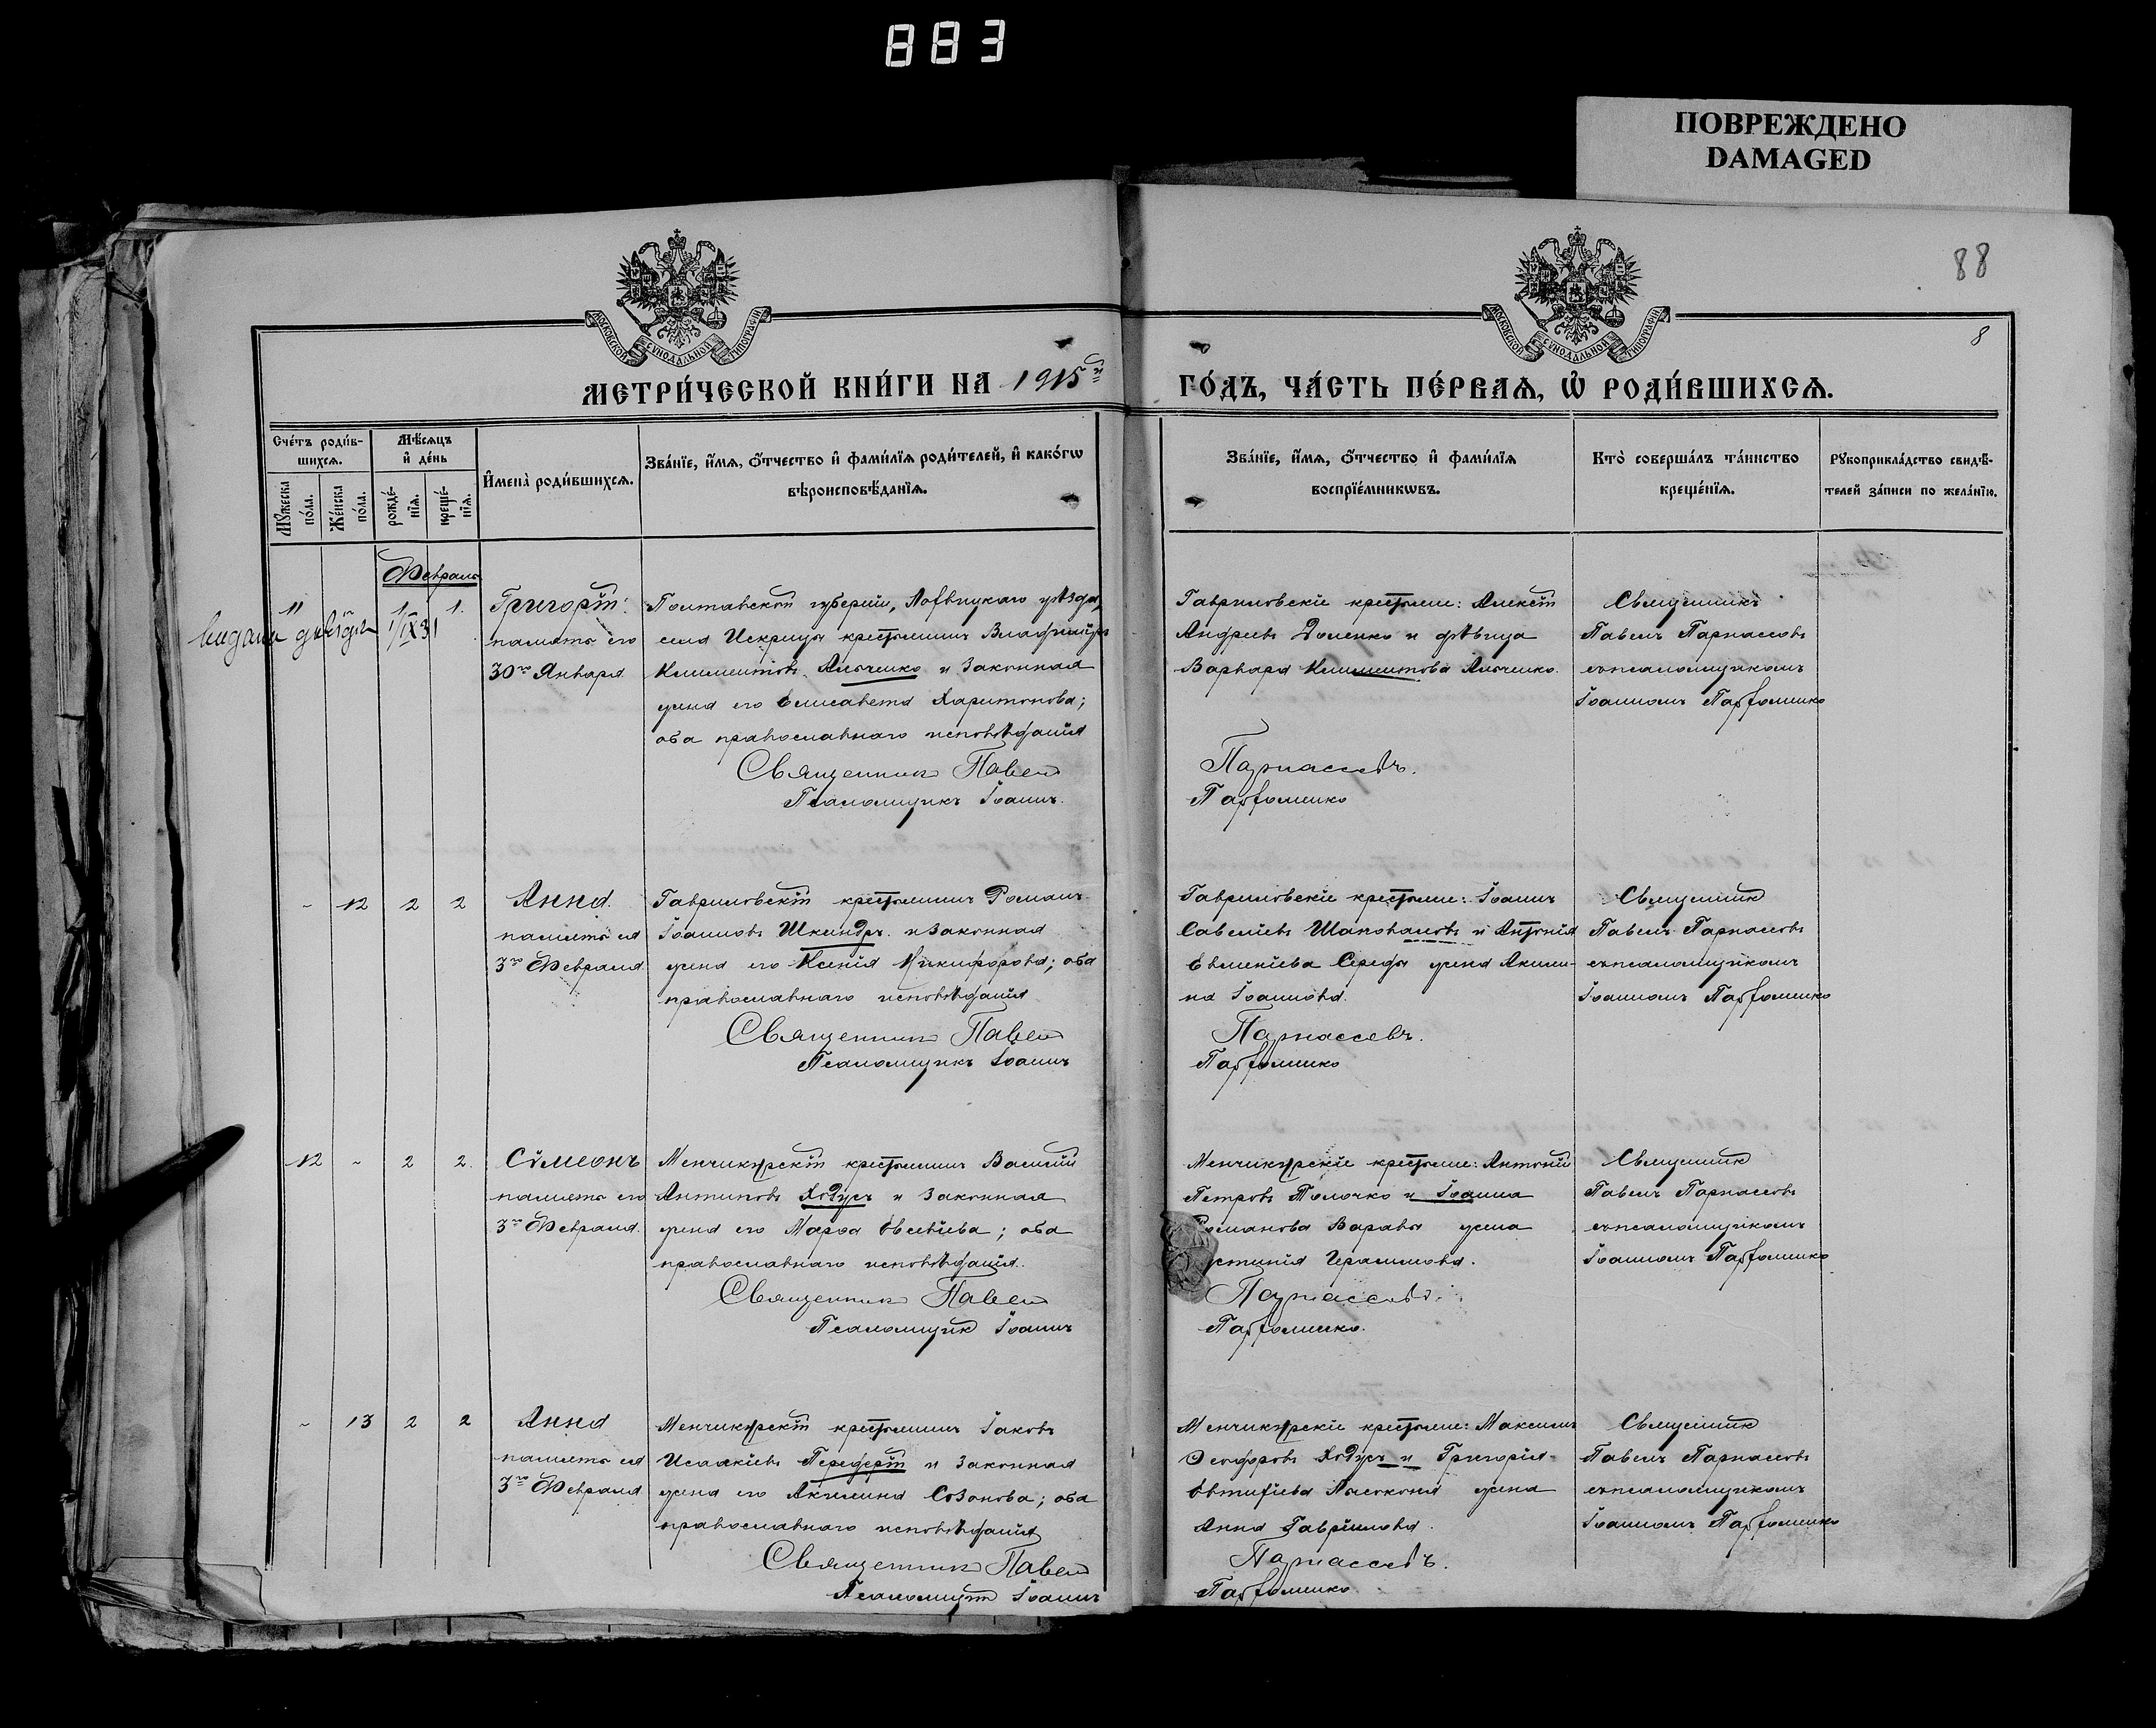 883
ПОВРЕЖДЕНО
DAMAGED
88
8
МОСКОВСКОЙ СѴНОДАЛЬНОЙ ТИПОГРАФІИ
МОСКОВСКОЙ СѴНОДАЛЬНОЙ ТИПОГРАФІИ
МЕТРИ́ЧЕСКОЙ КНИ́ГИ НА 1915й
ГО́ДЪ, ЧА́СТЬ ПЕ́РВАѦ, Ѡ҆ РОДИ́ВШИХСѦ.
Сче́тъ роди́в-
шихсѧ.
Мѣ́сѧцъ
и҆ де́нь
Мꙋ́жеска
по́ла.
Же́нска
по́ла.
рожде́-
нїѧ.
креще́-
нїѧ.
И҆мена̀ роди́вшихсѧ.
Зва́нїе, и҆́мѧ, ѻ҆́тчество и҆ фами́лїѧ роди́телей, и҆ како́гѡ
вѣроисповѣ́данїѧ.
Зва́нїе, и҆́мѧ, ѻ҆́тчество и҆ фами́лїѧ
воспрїе́мникѡвъ.
Кто̀ соверша́лъ та́инство
креще́нїѧ.
Рꙋкоприкла́дство свидѣ́-
телей за́писи по жела́нїю.
Февраль
11 1. 1. Григорій.
Полтавской губерніи, Лохвицкаго уѣзда,
память его
села Искрицы крестьянинъ Владиміръ
30го Января
Климентовъ и законная
жена его Елисавета Харитонова;
оба православнаго исповѣданія
Священникъ Павелъ
Псаломщикъ Іоаннъ
Гавриловскіе крестьяне: Алексій
Андреевъ Доленко и дѣвица
Варвара Климентова
Парнассевъ.
Парфоменко
Священникъ
Павелъ Парнассевъ
съ псаломщикомъ
Іоанномъ Парфоменко
- 12 2 2 Анна.
память ея
3го Февраля
Гавриловскій крестьянинъ Романъ
Іоанновъ Шкиндръ и законная
жена его Ксенія Никифорова; оба
православнаго исповѣданія
Священникъ Павелъ
Псаломщикъ Іоаннъ
Гавриловскіе крестьяне: Іоаннъ
Савеліевъ Шаповаловъ и Антонія
Евменіева Середы жена Акили-
на Іоаннова.
Парнассевъ.
Парфоменко
Священникъ
Павелъ Парнассевъ
съ псаломщикомъ
Іоанномъ Парфоменко
12 - 2 2. Сѵмеонъ
память его
3го Февраля.
Менчикурскій крестьянинъ Василій
Антиповъ Ходусъ и законная
жена его Марѳа Евсевіева; оба
православнаго исповѣданія.
Священникъ Павелъ
Псаломщикъ Іоаннъ
Менчикурскіе крестьяне: Антоній
Петровъ Толочко и Іоанна
Романова Варавы жена
Герасимова.
Парнассевъ.
Парфоменко.
Священникъ
Павелъ Парнассевъ
съ псаломщикомъ
Іоанномъ Парфоменко
- 13 2 2 Анна
память ея
3го Февраля
Менчикурскій крестьянинъ Іаковъ
Исаакіевъ Передерій и законная
жена его Акилина Созонова; оба
православнаго исповѣданія
Священникъ Павелъ
Псаломщикъ Іоаннъ
Менчикурскіе крестьяне: Максимъ
Ѳеодоровъ Ходусъ и Григорія
Евтихіева жена
Анна Гавріилова.
Парнассевъ.
Парфоменко
Священникъ
Павелъ Парнассевъ
съ псаломщикомъ
Іоанномъ Парфоменко